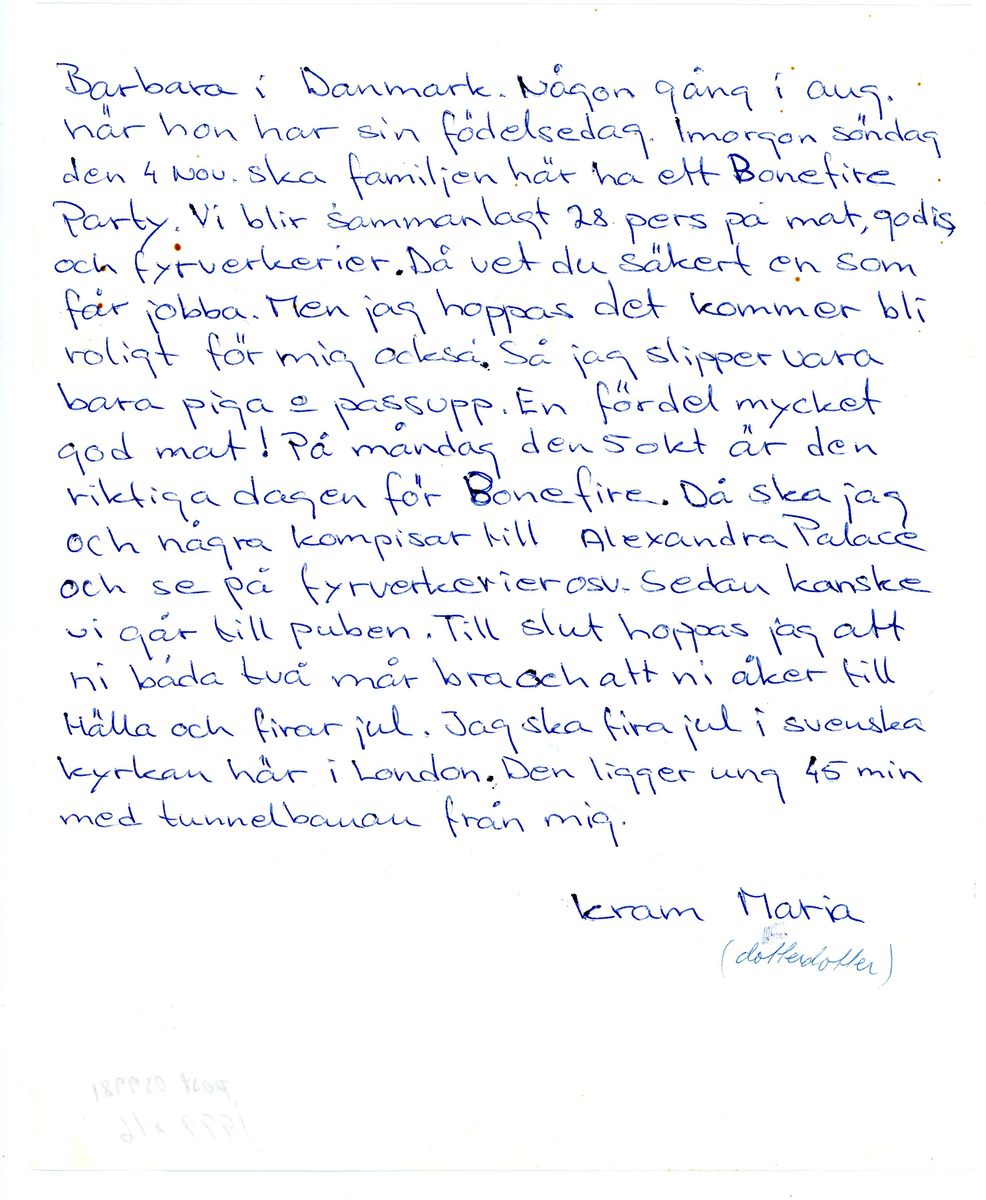 Barbara i Danmark. Någon gång i aug.
när hon har sin födelsedag. Imorgon söndag
den 4 Nov. ska familjen här ha ett Bonefire
Party. Vi blir sammanlagt 28 pers på mat, godis
och fyrverkerier. Då vet du säkert en som
får jobba. Men jag hoppas det kommer bli
roligt för mig också. Så jag slipper vara
bara piga o passupp. En fördel mycket
god mat! På måndag den 5 okt är den
riktiga dagen för Bonefire. Då ska jag
och några kompisar till Alexandra Palace
och se på fyrverkerier osv. Sedan kanske
vi går till puben. Till slut hoppas jag att
ni båda två mår bra och att ni åker till
Hälla och firar jul. Jag ska fira jul i svenska
kyrkan här i London. Den ligger ung 45 min
med tunnelbanan från mig.
Kram Maria
(dotterdotter)